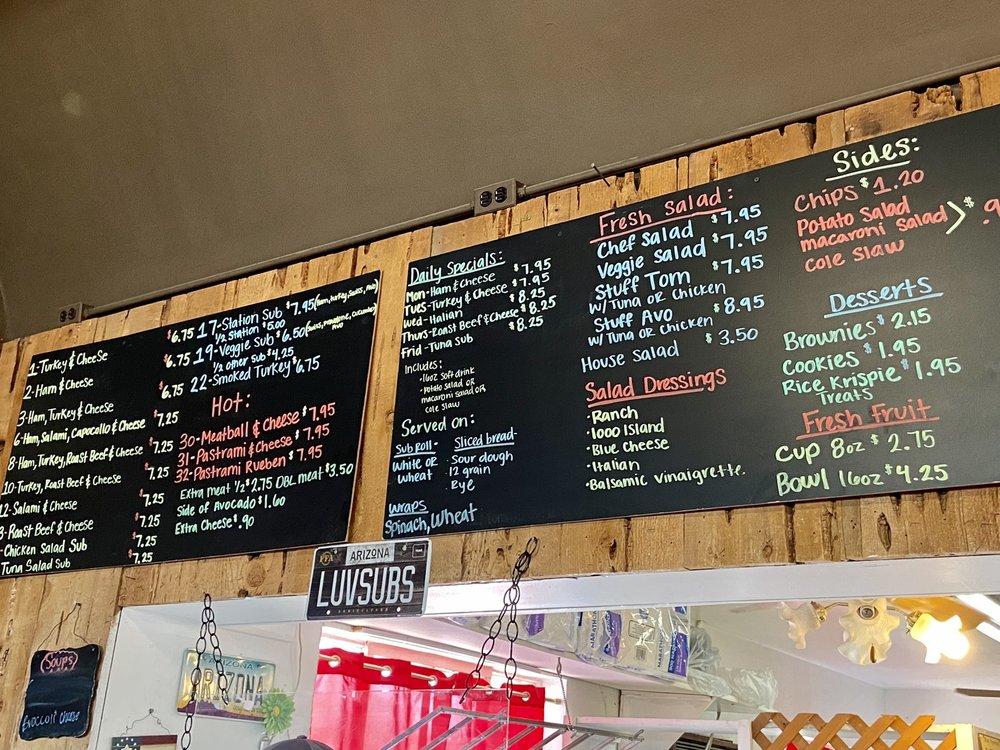 1-Turkey & Cheese $6.75
2-Ham & Cheese $6.75
3-Ham, Turkey & Cheese $6.75
6-Ham, Salami, Capocollo & Cheese $7.25
8-Ham, Turkey, Roast Beef & Cheese $7.25
10-Turkey, Roast Beef & Cheese $7.25
12-Salami & Cheese $7.25
3-Roast Beef & Cheese $7.25
-Chicken Salad Sub $7.25
Tuna Salad Sub $7.25
17-Station Sub $7.95
1/2 Station $5.00
19-Veggie Sub $6.50
1/2 other sub $4.25
22-Smoked Turkey $6.75
Hot:
30-Meatball & Cheese $7.95
31-Pastrami & Cheese $7.95
32-Pastrami Rueben $7.95
Extra meat 1/2 $2.75 DBL meat $3.50
Side of Avocado $1.60
Extra Cheese $.90
Daily Specials:
Mon-Ham & Cheese $7.95
Tues-Turkey & Cheese $7.95
Wed-Italian $8.25
Thurs-Roast Beef & Cheese $8.25
Frid-Tuna Sub $8.25
Includes:
·16oz Soft drink
·Potato Salad or
macaroni Salad or
cole slaw
Served on:
Sub Roll-
White or
Wheat
Sliced bread-
·Sour dough
·12 grain
·Rye
Wraps
Spinach, Wheat
Fresh Salad:
Chef Salad $7.95
Veggie Salad $7.95
Stuff Tom $7.95
w/Tuna or Chicken
Stuff Avo $8.95
w/Tuna or Chicken
House Salad $3.50
Salad Dressings
·Ranch
·1000 Island
·Blue Cheese
·Italian
·Balsamic Vinaigrette.
Sides:
Chips $1.20
Potato Salad
macaroni Salad > $.9
cole slaw
Desserts
Brownies $2.15
Cookies $1.95
Rice Krispie $1.95
Treats
Fresh Fruit
Cup 8oz $2.75
Bowl 16oz $4.25
ARIZONA
LUVSUBS
Soups
Broccoli Cheese
ARIZONA
ARIZONA
MARATHON